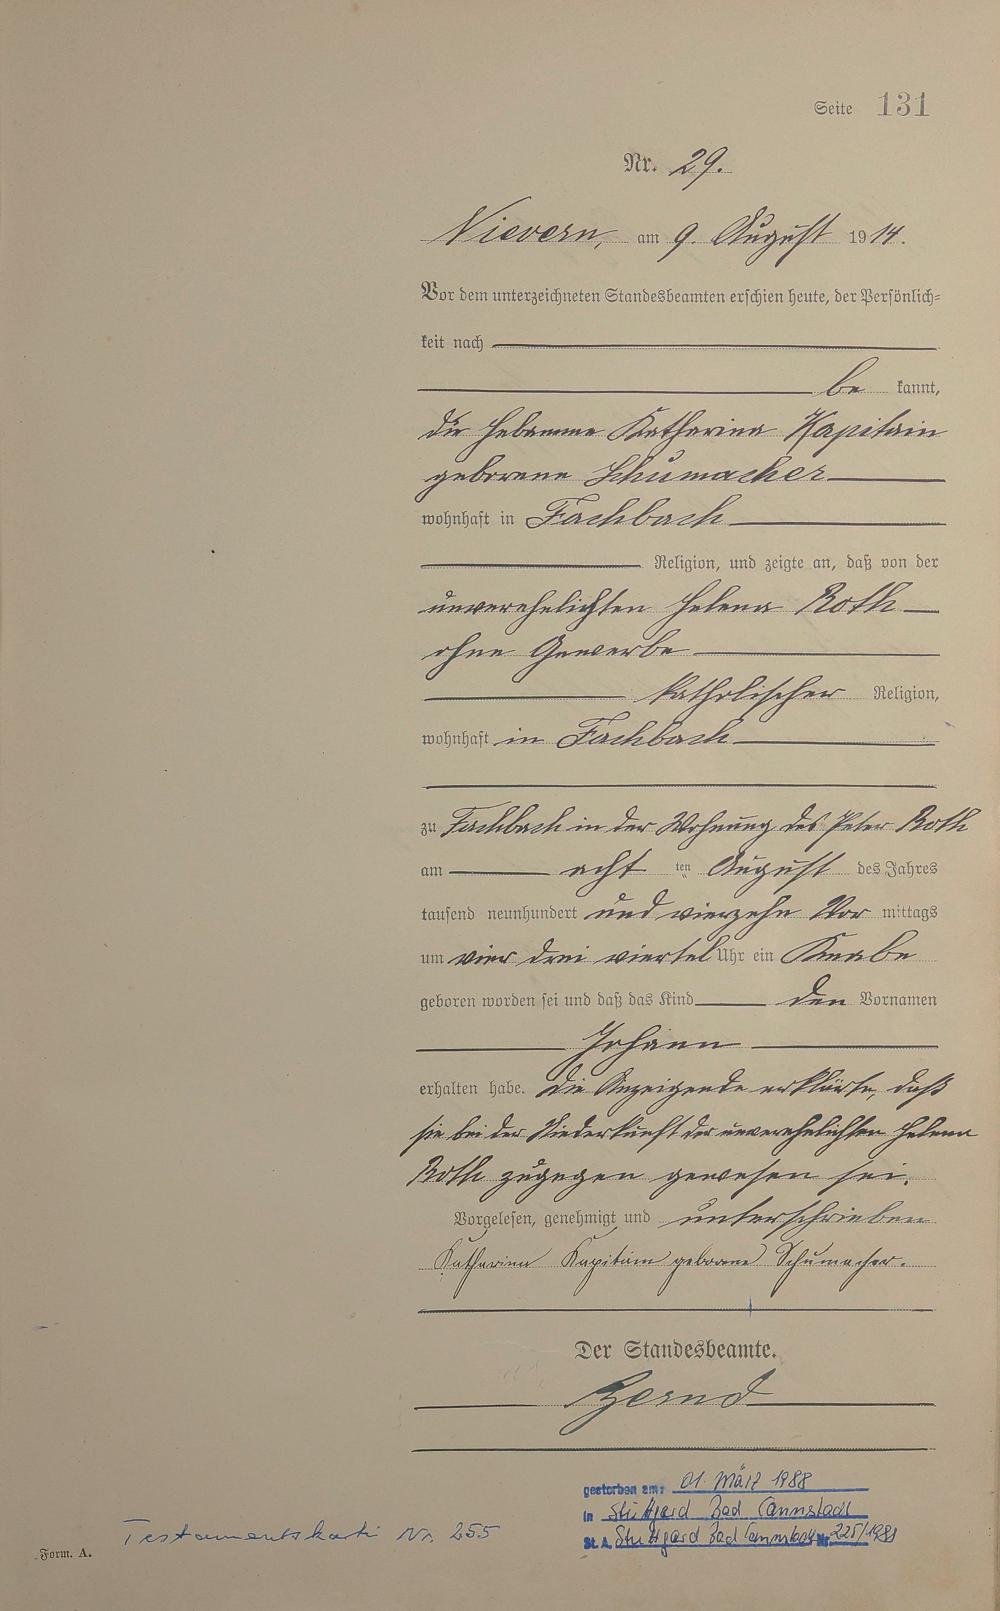 Seite 131
Nr. 29.
Nievern, am 9. August 1914.
Vor dem unterzeichneten Standesbeamten erschien heute, der Persönlich=
keit nach
be kannt,
die Hebamme Katharina Kapitain
geborene Schumacher
wohnhaft in Fachbach
Religion, und zeigte an, daß von der
unverehelichten Helena Roth
ohne Gewerbe
katholischer Religion,
wohnhaft in Fachbach
zu Fachbach in der Wohnung des Peter Roth
am acht ten August des Jahres
tausend neunhundert und vierzehn Vor mittags
um vier drei viertel Uhr ein Knabe
geboren worden sei und daß das Kind den Vornamen
Johann
erhalten habe. Die Anzeigende erklärte, daß
sie bei der Niederkunft der unverehelichten Helena
Roth zugegen gewesen sei.
Vorgelesen, genehmigt und unterschrieben
Katharina Kapitain geborene Schumacher.
Der Standesbeamte.
gestorben am: 01. März 1988
in Stuttgard Bad Cannstadt
St. A. Stuttgard Bad Cannstadt Nr. 225/1988
Testamentskartei Nr. 255
Form. A.